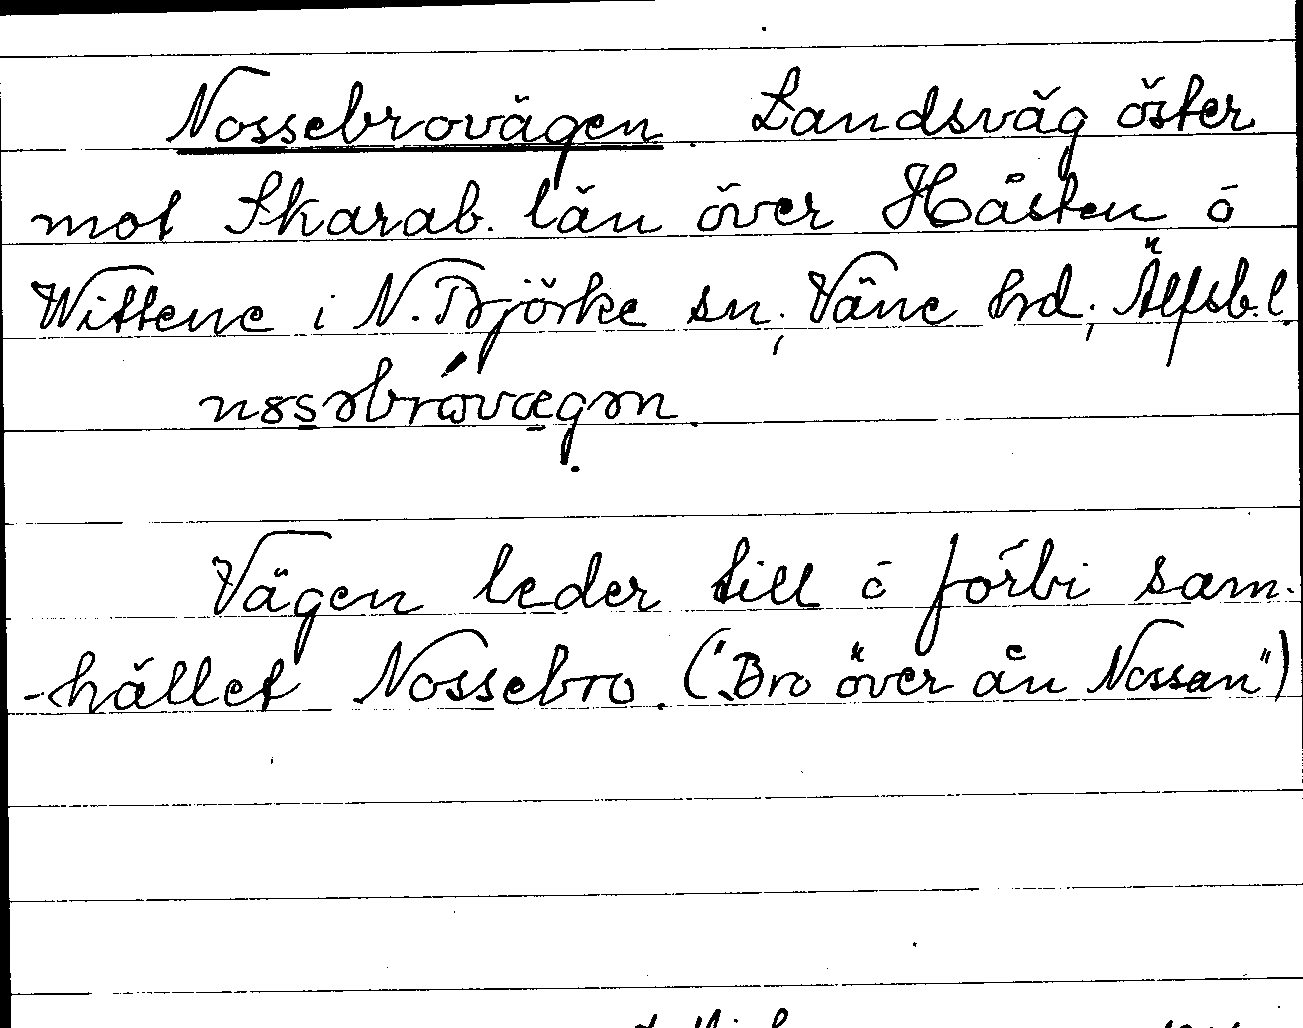 Nossebrovägen. Landsväg öster
mot Skarab. län över Håsten ö
Wittene i N. Björke sn, Väne hrd; Älfsb. l.
Vägen leder till ö förbi sam-
-hället Nossebro. ("Bro över ån Nossan")